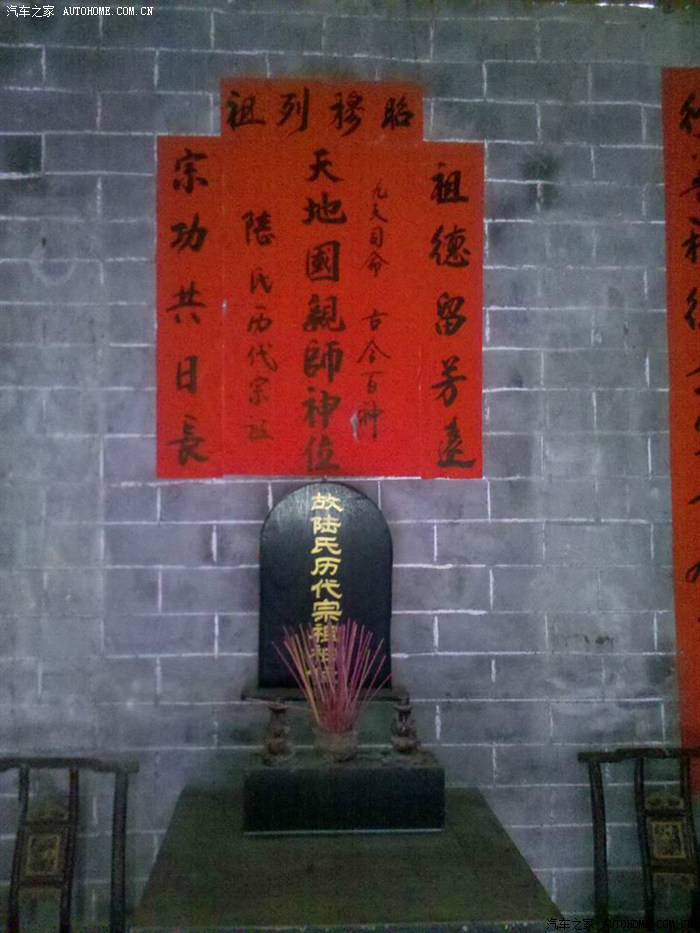 汽车之家 AUTOHOME.COM.CN
祖列穆昭
祖德留芳遠
九天司命 古今百神
天地國親師神位
陸氏历代宗祖
宗功共日長
故陆氏历代宗祖
汽车之家 AUTOHOME.COM.CN